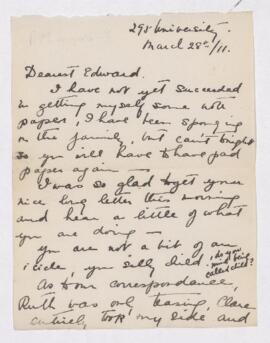 295 University.
March 28th/11.
Dearest Edward.
I have not yet succeeded
in getting myself some note
paper, I have been sponging
on the family, but can't tonight
so you will have to have pad
paper again —
I was so glad to get your
nice long letter this morning
and hear a little of what
you are doing —
you are not a bit of an
icicle, you silly child. do you
mind being
called child?
As to our correspondence,
Ruth was only teasing, Clare
entirely took my side and